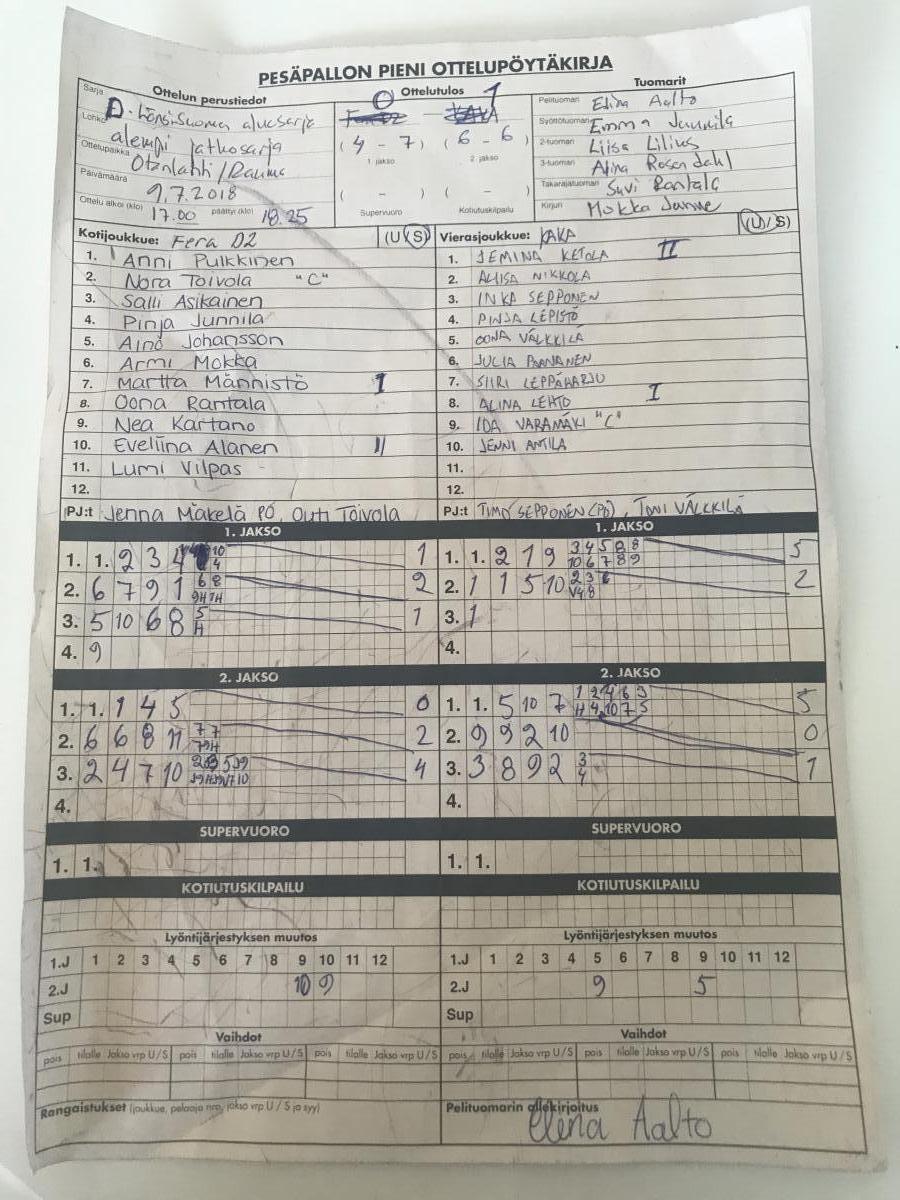 PESÄPALLON PIENI OTTELUPÖYTÄKIRJA
Ottelun perustiedot
Sarja D. Länsi-Suomen aluesarja
Lohko alempi jatkosarja
Ottelupaikka Otanlahti/Rauma
Päivämäärä 9.7.2018
Ottelu alkoi (klo) 17.00 päättyi (klo) 18.25
Ottelutulos
0 1
( 4 - 7 ) ( 6 - 6 )
1 jakso 2 jakso
( - ) ( - )
Supervuoro Kotiutuskilpailu
Tuomarit
Pelituomari Elina Aalto
Syöttötuomari Emma Junnila
2-tuomari Liisa Lilius
3-tuomari Alina Rosendahl
Takarajatuomari Suvi Rantala
Kirjuri Mokka Janne
Kotijoukkue: Fera D2 (U/S)
1. Anni Pulkkinen
2. Nora Toivola "C"
3. Salli Asikainen
4. Pinja Junnila
5. Aino Johansson
6. Armi Mokka
7. Martta Männistö I
8. Oona Rantala
9. Nea Kartano
10. Eveliina Alanen II
11. Lumi Vilpas
12.
PJ:t Jenna Mäkelä PÖ, Outi Toivola
Vierasjoukkue: KAKA (U/S)
1. JEMINA KETOLA II
2. ALIISA NIKKOLA
3. INKA SEPPONEN
4. PINJA LEPISTÖ
5. OONA VÄLKKILÄ
6. JULIA PAANANEN
7. SIIRI LEPPÄHARJU
8. ALINA LEHTO I
9. IDA VARAMÄKI "C"
10. JENNI ANTILA
11.
12.
PJ:t TIMO SEPPONEN (PÖ), TONI VÄLKKILÄ
1. JAKSO
1. 1. 2 3 4 10 4 1
2. 6 7 9 1 6 8 9H 7H 2
3. 5 10 6 8 5 H 1
4. 9
1. JAKSO
1. 1. 2 1 9 3 4 5 8 8 10 6 7 8 9 5
2. 1 1 5 10 2 3 6 V4 8 2
3. 1
4.
2. JAKSO
1. 1. 1 4 5 0
2. 6 6 8 11 7 7 2
3. 2 4 7 10 4
4.
2. JAKSO
1. 1. 5 10 7 1 2 4 6 3 H 4 10 7 5 5
2. 9 9 2 10 0
3. 3 8 9 2 3 4 1
4.
SUPERVUORO
1. 1.
SUPERVUORO
1. 1.
KOTIUTUSKILPAILU
KOTIUTUSKILPAILU
Lyöntijärjestyksen muutos
1.J 1 2 3 4 5 6 7 8 9 10 11 12
2.J 10 9
Sup
Lyöntijärjestyksen muutos
1.J 1 2 3 4 5 6 7 8 9 10 11 12
2.J 9 5
Sup
Vaihdot
pois tilalle Jakso vrp U/S pois tilalle Jakso vrp U/S pois tilalle Jakso vrp U/S
Vaihdot
pois tilalle Jakso vrp U/S pois tilalle Jakso vrp U/S pois tilalle Jakso vrp U/S
Rangaistukset (joukkue, pelaaja nro, jakso vrp U / S ja syy)
Pelituomarin allekirjoitus
Elina Aalto